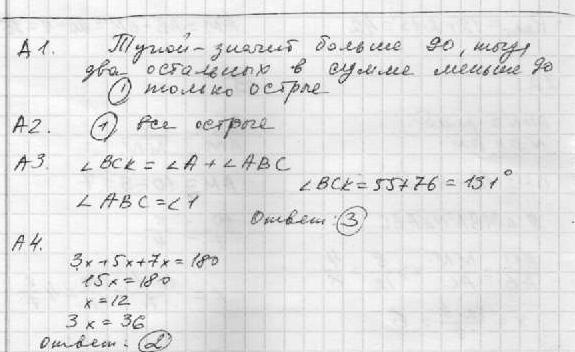 А1. Тупой - значит больше 90, тогда
два остальных в сумме меньше 90
① только острые
А2. ① все острые
А3. ∠BCK = ∠A + ∠ABC
∠BCK = 55+76 = 131°
∠ABC = ∠1
Ответ: ③
А4.
3x+5x+7x=180
15x=180
x=12
3x=36
Ответ: ②